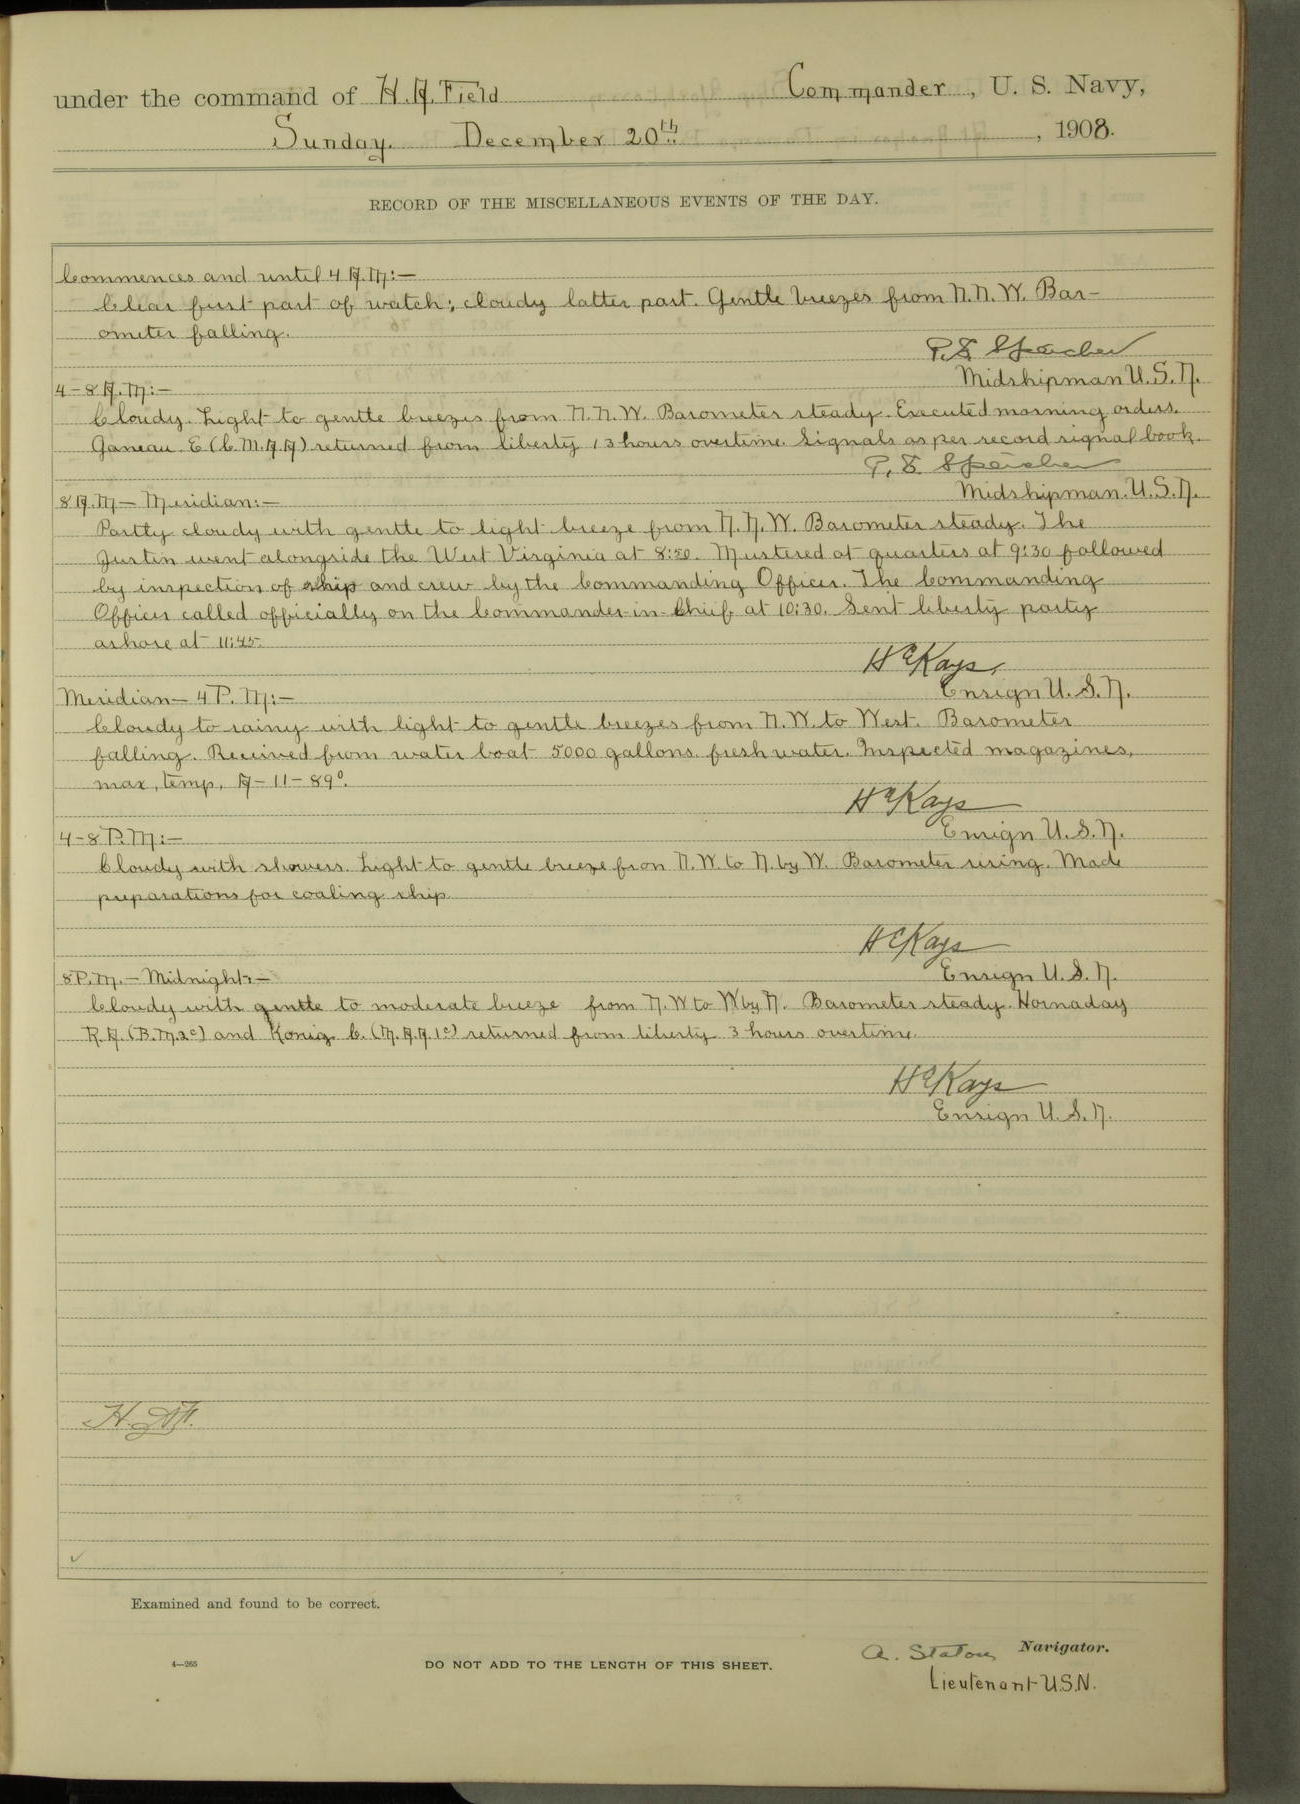 under the command of H. A. Field Commander, U. S. Navy,
Sunday. December 20th, 1908.
RECORD OF THE MISCELLANEOUS EVENTS OF THE DAY.
Commences and until 4 A.M:—
Clear first part of watch; cloudy latter part. Gentle breezes from N.N.W. Bar-
ometer falling.
P. F. Speicher
Midshipman U.S.N.
4-8 A.M:—
Cloudy. Light to gentle breezes from N.N.W. Barometer steady. Executed morning orders.
Ganeau. E (C.M.A.A) returned from liberty 13 hours overtime. Signals as per record signal book.
P. F. Speicher
Midshipman. U.S.N.
8 A.M — Meridian:—
Partly cloudy with gentle to light breeze from N.N.W. Barometer steady. The
Justin went alongside the West Virginia at 8:50. Mustered at quarters at 9:30 followed
by inspection of ship and crew by the Commanding Officer. The Commanding
Officer called officially on the Commander-in-Chief at 10:30. Sent liberty party
ashore at 11:45.
H E Kays,
Ensign U.S.N.
Meridian — 4 P.M:—
Cloudy to rainy with light to gentle breezes from N.W. to West. Barometer
falling. Received from water boat 5000 gallons. fresh water. Inspected magazines,
max, temp, A-11-89°.
H E Kays
Ensign U.S.N.
4-8 P.M:—
Cloudy with showers. Light to gentle breeze fron N.W. to N. by W. Barometer rising. Made
preparations for coaling ship.
H E Kays
Ensign U.S.N.
8 P.M. — Midnight:—
Cloudy with gentle to moderate breeze from N.W to W by N. Barometer steady. Hornaday
R.A. (B.M.2c) and Konig C. (M.A.A 1c) returned from liberty 3 hours overtime.
H E Kays
Ensign U.S.N.
H. A. F.
Examined and found to be correct.
A. Staton Navigator.
4—265 DO NOT ADD TO THE LENGTH OF THIS SHEET.
Lieutenant U.S.N.